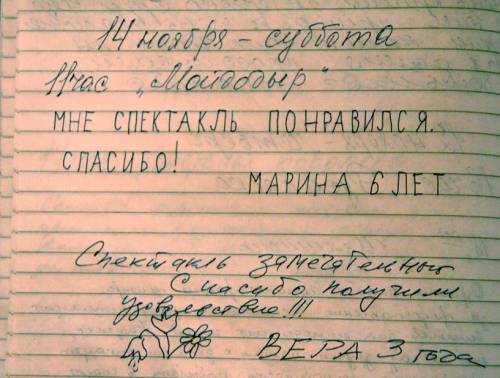 14 ноября - суббота
11 час „Мойдодыр"
МНЕ СПЕКТАКЛЬ ПОНРАВИЛСЯ.
СПАСИБО!
МАРИНА 6 ЛЕТ
Спектакль замечательный
Спасибо получили
удовольствие!!!
ВЕРА 3 года